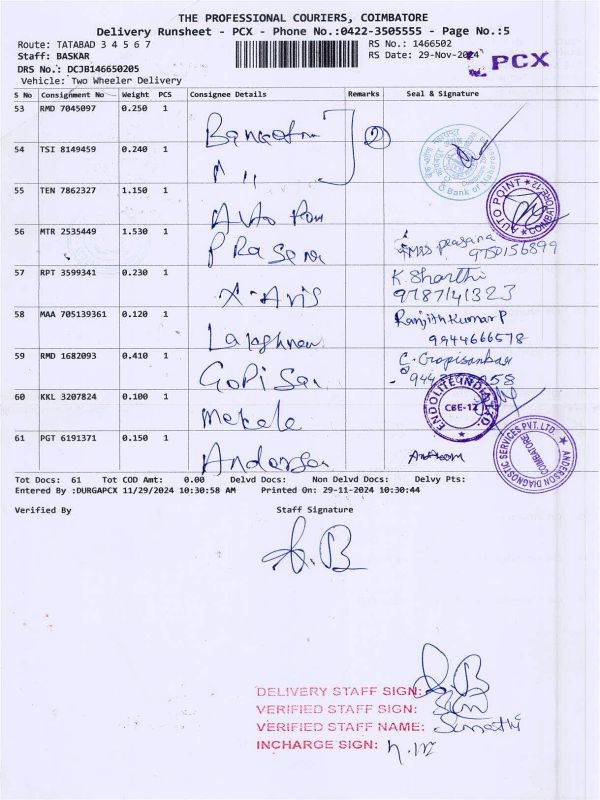 THE PROFESSIONAL COURIERS, COIMBATORE
Delivery Runsheet - PCX - Phone No.:0422-3505555 - Page No.:5
Route: TATABAD 3 4 5 6 7
RS No.: 1466502
Staff: BASKAR
RS Date: 29-Nov-2024
PCX
DRS No.: DCJB146650205
Vehicle: Two Wheeler Delivery
S No Consignment No Weight PCS Consignee Details Remarks Seal & Signature
53 RMD 7045097 0.250 1
54 TSI 8149459 0.240 1
55 TEN 7862327 1.150 1
AUTO POINT
COIMBATORE-12
56 MTR 2535449 1.530 1 PRasana
prasana
9750156899
57 RPT 3599341 0.230 1 X-Aris K.Sharthi
9787141323
58 MAA 705139361 0.120 1 Ranjith Kumar P
9944666578
59 RMD 1682093 0.410 1 GoPi San
60 KKL 3207824 0.100 1
ENDOLITE INDIA LTD.
CBE-12
61 PGT 6191371 0.150 1
ANDERSON DIAGNOSTIC SERVICES PVT.LTD.
COIMBATORE
Tot Docs: 61 Tot COD Amt: 0.00 Delvd Docs: Non Delvd Docs: Delvy Pts:
Entered By :DURGAPCX 11/29/2024 10:30:58 AM Printed On: 29-11-2024 10:30:44
Verified By Staff Signature
DELIVERY STAFF SIGN:
VERIFIED STAFF SIGN:
VERIFIED STAFF NAME:
INCHARGE SIGN: